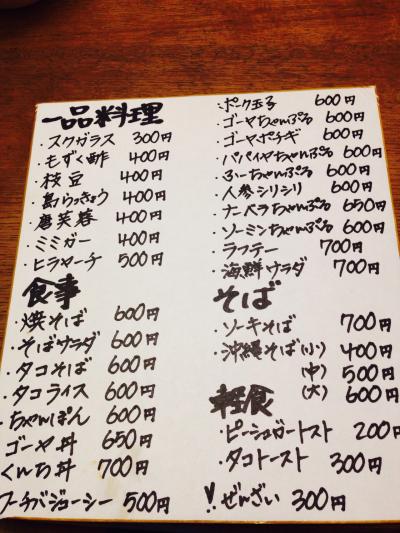 一品料理
・スクガラス 300円
・もずく酢 400円
・枝豆 400円
・島らっきょう 400円
・唐芙蓉 400円
・ミミガー 400円
・ヒラヤーチ 500円
食事
・焼そば 600円
・そばサラダ 600円
・タコそば 600円
・タコライス 600円
・ちゃんぽん 600円
・ゴーヤ丼 650円
・くんち丼 700円
フーチバジューシー 500円
・ポーク玉子 600円
・ゴーヤちゃんぷる 600円
・ゴーヤポチギ 600円
・パパイヤちゃんぷる 600円
・ふーちゃんぷる 600円
・人参シリシリ 600円
・ナーベラちゃんぷる 650円
・ソーミンちゃんぷる 600円
・ラフテー 700円
・海鮮サラダ 700円
そば
・ソーキそば 700円
・沖縄そば(小) 400円
(中) 500円
(大) 600円
軽食
・ピーシュガートースト 200円
・タコトースト 300円
・ぜんざい 300円